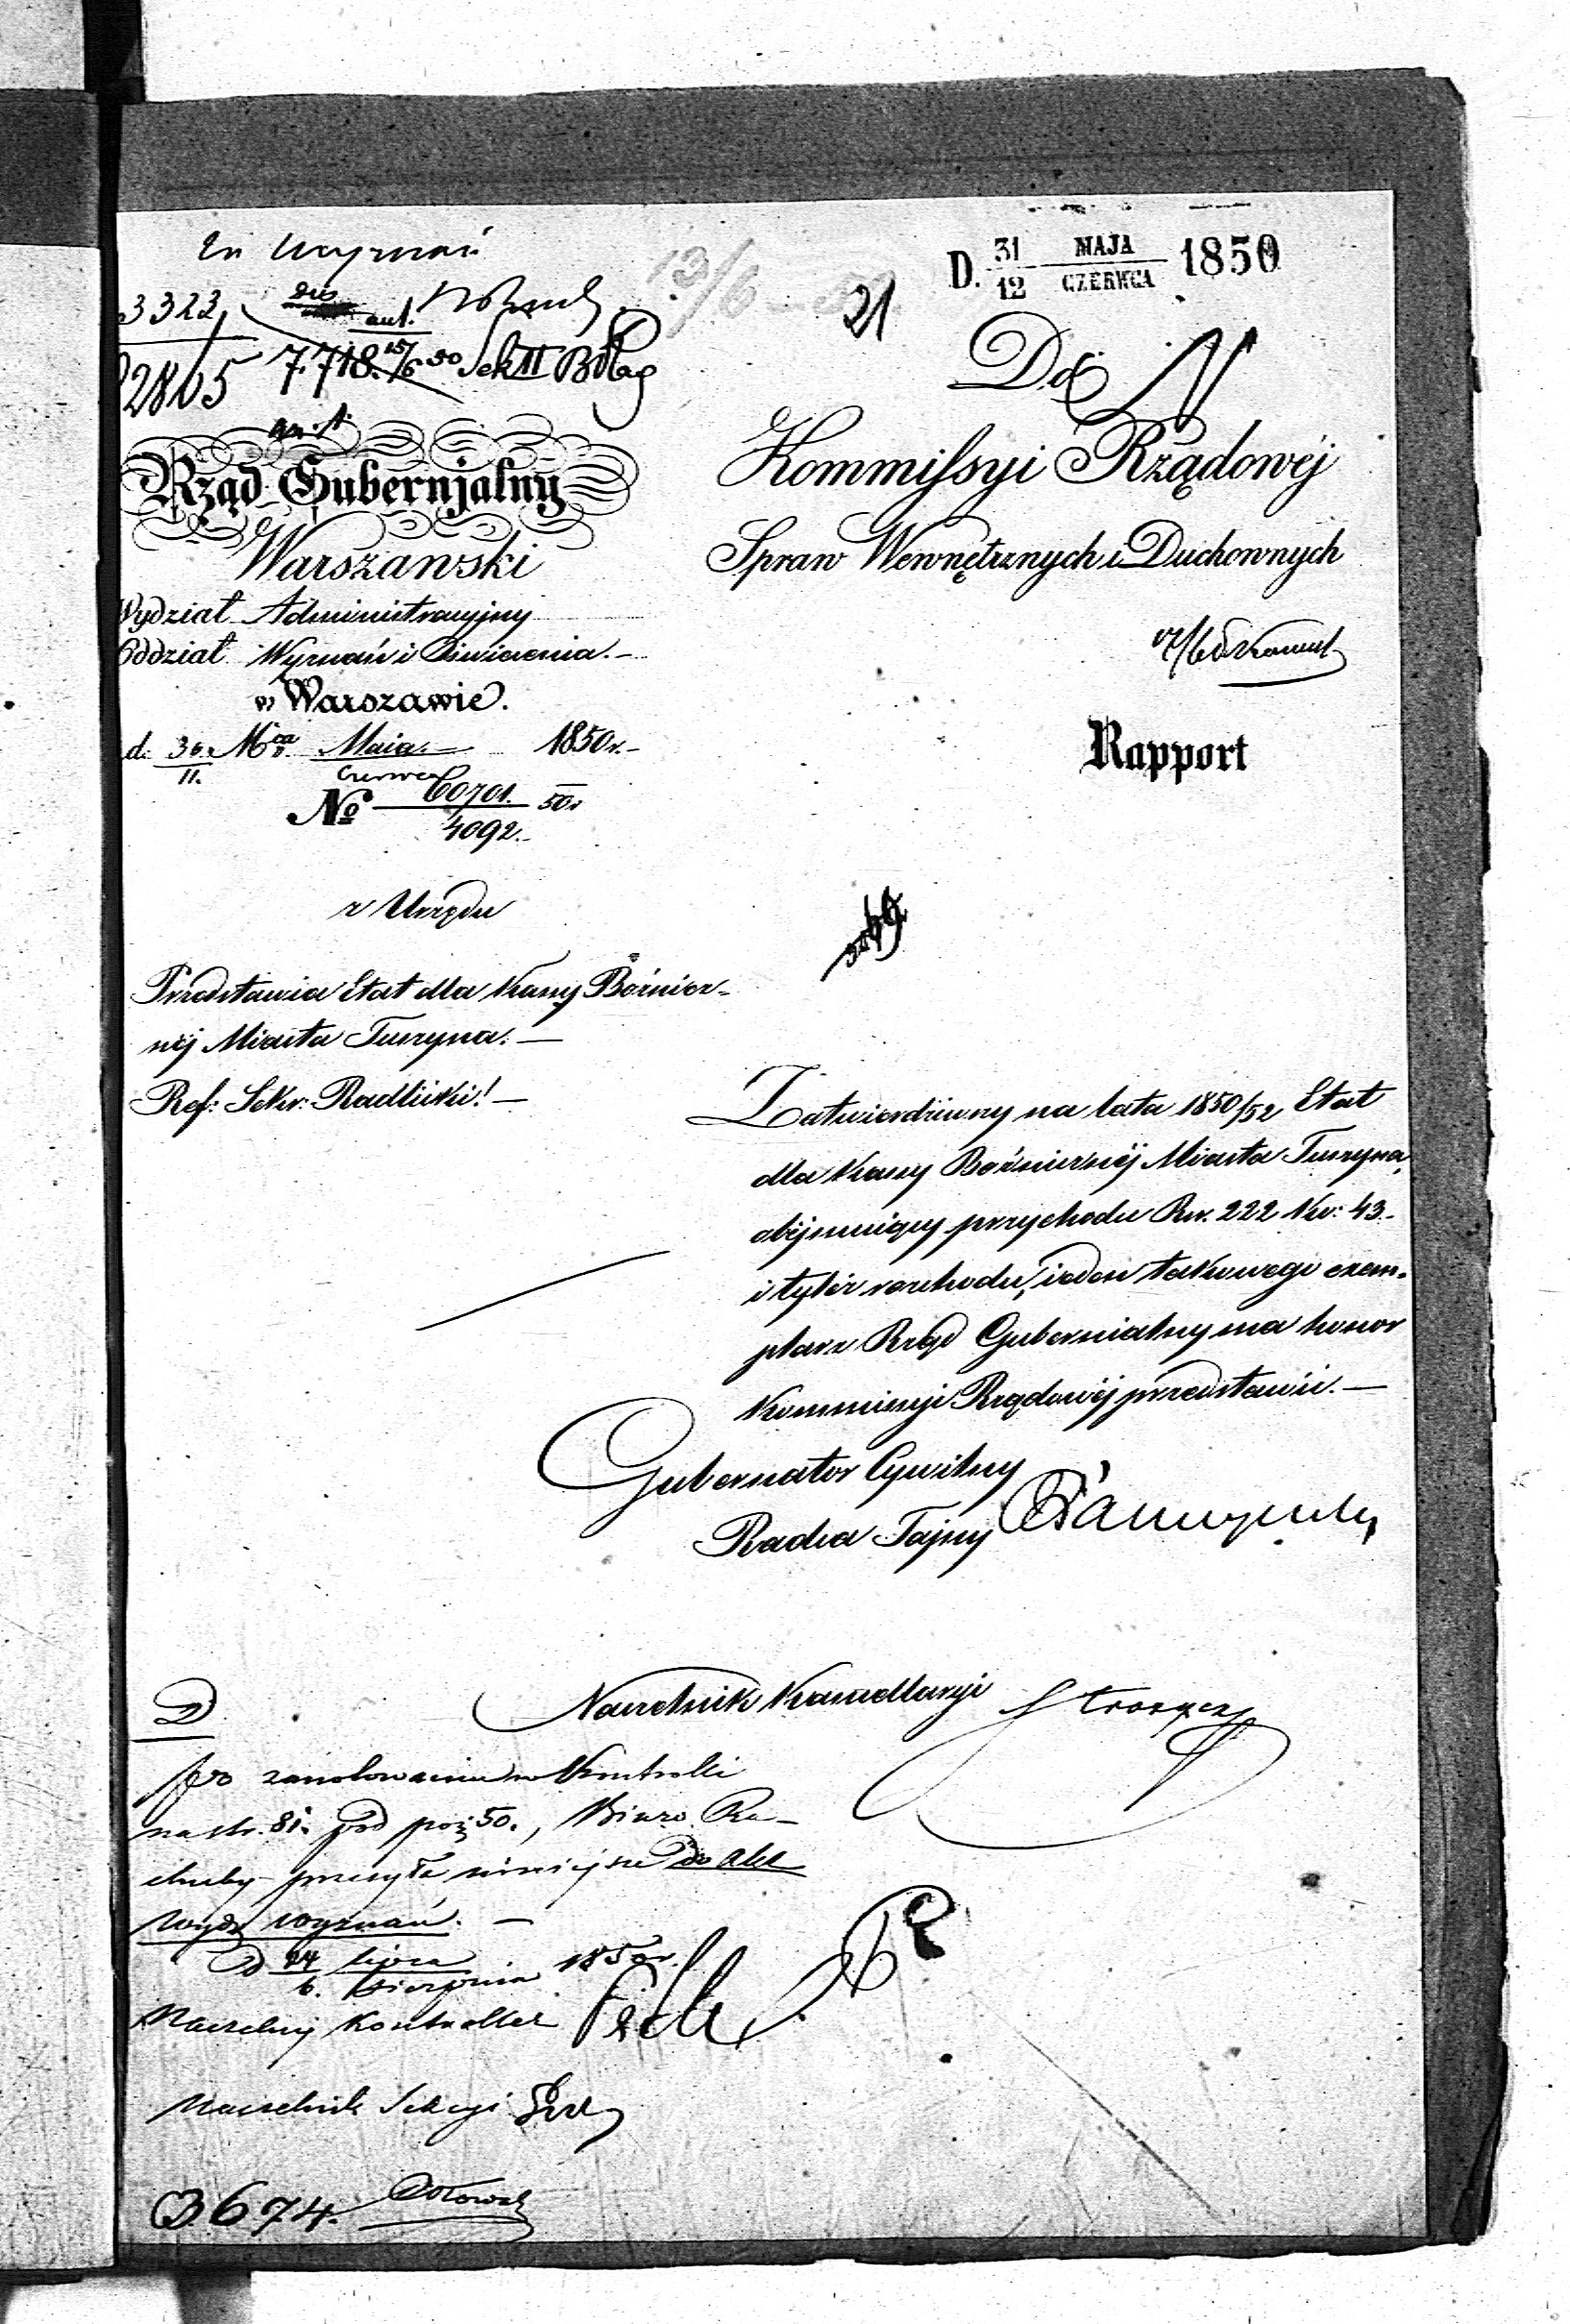 D. 31/12 MAJA/CZERWCA 1850
21
3323
22805 7.718. 15/6 50 Sek II
Rząd Gubernjalny
Warszawski
Wydział Administracyjny
Oddział Wyznań i Oświecenia.
w Warszawie.
d. 30./11. Mca Maia/Czerwca 1850 r.
No 60701./4092. 50 r
z Urzędu
Przedstawia Etat dla Kassy Bóżnicz-
néj Miasta Tuszyna.
Ref: Sekr: Radlicki!
Do
Kommissyi Rządowéj
Spraw Wewnętrznych i Duchownych
Rapport
Zatwierdzony na lata 1850/52 Etat
dla Kassy Bóżnicznéj Miasta Tuszyna,
obejmuiący przychodu Rsr. 222 Kor: 43.
i tyleż rozchodu, ieden takowego exem-
plarz Rząd Gubernialny ma honor
Kommissyi Rządowéj przedstawić.
Gubernator Cywilny
Radca Tajny
Naczelnik Kancellaryi
D
Po zanotowaniu w Kontrolli
na str. 81. pod poz 50., Biuro Ra-
chuby przesyła niniejsze do Akt
Wydz Wyznań.
D 24/6. Lipca/Sierpnia 1850 r.
Naczelny Kontroller
Naczelnik Sekcyi
3674.